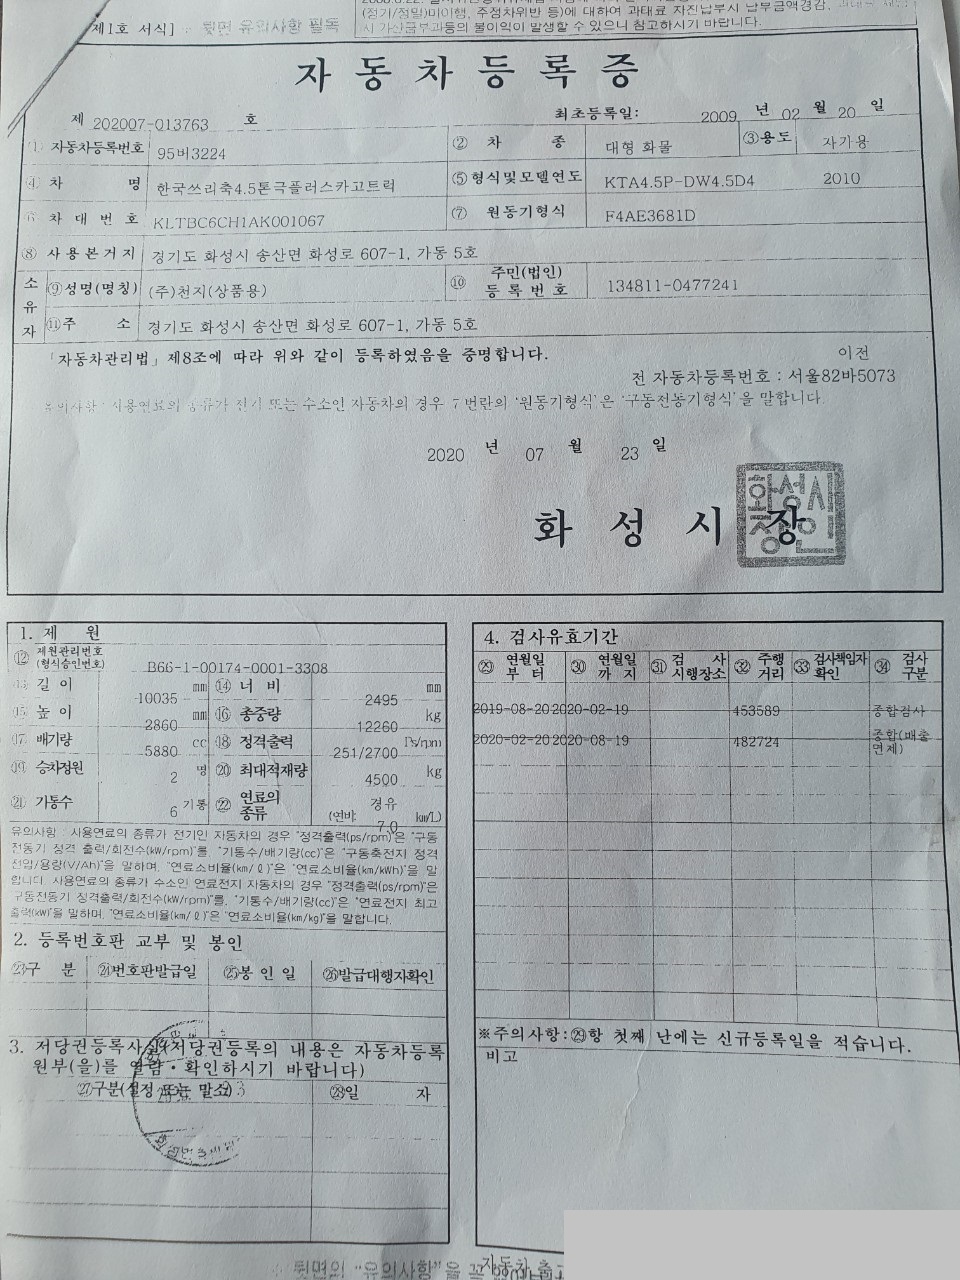 제1호 서식]
(정기/정밀)미이행, 주정차위반 등)에 대하여 과태료 자진납부시 납부금액경감,
시 가산금부과등의 불이익이 발생할 수 있으니 참고하시기 바랍니다.
자동차등록증
제 202007-013763 호
최초등록일: 2009 년 02 월 20 일
① 자동차등록번호 95버3224 ② 차 종 대형 화물 ③용도 자가용
④ 차 명 한국쓰리축4.5톤극플러스카고트럭 ⑤ 형식및모델연도 KTA4.5P-DW4.5D4 2010
⑥ 차대번호 KLTBC6CH1AK001067 ⑦ 원동기형식 F4AE3681D
⑧ 사용본거지 경기도 화성시 송산면 화성로 607-1, 가동 5호
소유자 ⑨성명(명칭) (주)천지(상품용) ⑩ 주민(법인)등록번호 134811-0477241
⑪주 소 경기도 화성시 송산면 화성로 607-1, 가동 5호
「자동차관리법」제8조에 따라 위와 같이 등록하였음을 증명합니다.
이전
전 자동차등록번호 : 서울82바5073
유의사항 : 사용연료의 종류가 전기 또는 수소인 자동차의 경우 7번란의 '원동기형식'은 '구동전동기형식'을 말합니다.
2020 년 07 월 23 일
화성시장
화성시장인
1. 제 원
⑫ 제원관리번호 (형식승인번호) B66-1-00174-0001-3308
⑬ 길이 10035 mm ⑭ 너비 2495 mm
⑮ 높이 2860 mm ⑯ 총중량 12260 kg
⑰ 배기량 5880 cc ⑱ 정격출력 251/2700 Ps/rpm
⑲ 승차정원 2 명 ⑳ 최대적재량 4500 kg
㉑ 기통수 6 기통 ㉒ 연료의 종류 경유 (연비: 7.0 km/L)
유의사항 : 사용연료의 종류가 전기인 자동차의 경우 "정격출력(ps/rpm)은 "구동
전동기 정격 출력/회전수(kW/rpm)"를, "기통수/배기량(cc)"은 "구동축전지 정격
전압/용량(V/Ah)"을 말하며, "연료소비율(km/ℓ)"은 "연료소비율(km/kWh)"을 말
합니다. 사용연료의 종류가 수소인 연료전지 자동차의 경우 "정격출력(ps/rpm)"은
"구동전동기 정격출력/회전수(kW/rpm)"를, "기통수/배기량(cc)"은 "연료전지 최고
출력(kW)"을 말하며, "연료소비율(km/ℓ)"은 "연료소비율(km/kg)"을 말합니다.
2. 등록번호판 교부 및 봉인
㉓구 분 ㉔번호판발급일 ㉕봉인일 ㉖발급대행자확인
3. 저당권등록사실(저당권등록의 내용은 자동차등록
원부(을)를 열람·확인하시기 바랍니다)
㉗구분(설정 또는 말소) ㉘일 자
4. 검사유효기간
㉙ 연월일부터 ㉚ 연월일까지 ㉛ 검사시행장소 ㉜ 주행거리 ㉝ 검사책임자확인 ㉞ 검사구분
2019-08-20 2020-02-19 453589 종합검사
2020-02-20 2020-08-19 482724 종합(배출면제)
※주의사항:㉙항 첫째 난에는 신규등록일을 적습니다.
비고